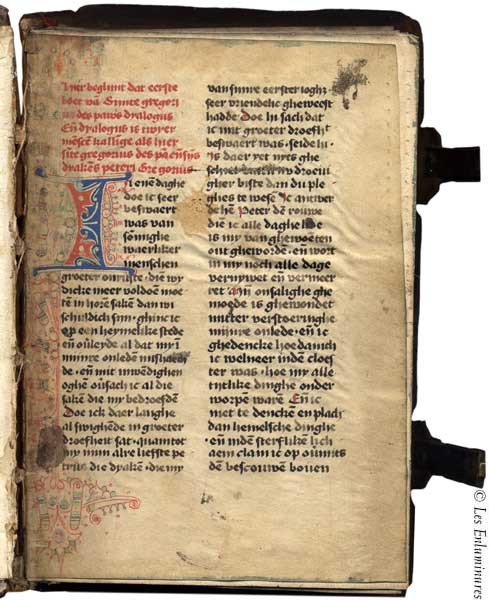 Hier beghint dat eerste
boec vā Sinte gregori
us des paws dyalogus
Eñ dyalogus is twier
mēschē kallige als hier
sīte gregorius des paeusys
dyakēs peters Gregorius
Alenē daghe
doe ic seer
beswaert
was van
somighe
waerliker
menschen
groeter onruste die wy
dicke meer voldoē moe
tē in horē sakē dan wi
schuldich sijn ghinc ic
op een heymelike stede
eñ ouleyde al dat my ī
minre onledē mishaech
de eñ mit inwēdighen
oghē ōfsach ic al die
sakē die my bedroefdē
Doe ick daer langhe
al swighēde in groeter
droefheit sat quam tot
my mijn alre liefste pe
trus die dyakē die my
van sinre eerster ioghz
seer vriendelic gheweest
hadde Doe hi sach dat
ic mit groeter droefh3
beswaert was seide hi
Is daer yet nyes ghe
schiet droeui
gher biste dan du ple
ghes te wesē Ic antwer
de hē Peter dē rouwe
diē ic alle daghe
is my van ghewoēten
out gheworden eñ wort
in my noch alle dage
vernywet eñ vermeer
ret onsalighe ghe
moede is ghewondet
mitter verstoeringhe
mijnre onlede eñ ic
ghedencke hoedanich
ic welneer indē cloes
ter was hoe my alle
tijtlike dinghe onder
worpē warē Eñ ic
niet te denckē en plach
dan hemelsche dinghe
eñ indē sterflikē lich
aem clam ic op ouermits
dē bescouwen bouen
© Les Enluminures